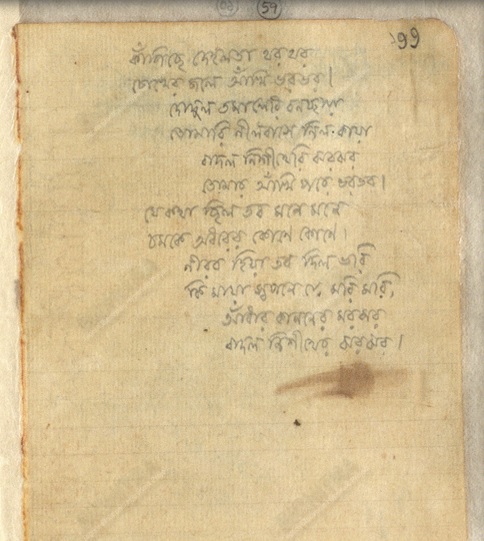 59
কাঁপিছে দেহলতা থর থর
চোখের জলে আঁখি ভরভর।
দোদুল তমালেরি বনছায়া
তোমারি নীলবাসে নিল কায়া
বাদল নিশীথেরি ঝরঝর
তোমার আঁখি পরে ভরভর।
যে কথা ছিল তব মনে মনে
চমকে অধরের কোণে কোণে।
নীরব হিয়া তব দিল ভরি
কি মায়া স্বপনে যে, মরি মরি,
আঁধার কাননের মরমর
বাদল নিশীথের ঝরঝর।